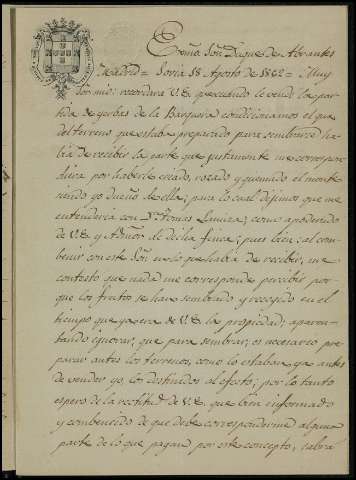 Exmo. Sor. Duque de Abrantes
Madrid = Soria 18 Agosto de 1862 = Muy
Sor mio: recordará V.E. que cuando le vendí la par-
tida de yerbas de la condicionamos el que
del terreno que estaba preparado para sembrarse ha-
bía de recibir la parte que justamente me correspon-
diera por haberle criado, rozado y quemado el monte
siendo yo dueño de ella; para lo cual dijimos que me
entendería con Dn. Tomas como apoderado
de V.E. y Admor. de dicha finca; pues bien, al con-
benir con este Sor. en lo que había de recibir, me
contestó que nada me corresponde percibir por
que los frutos se han sembrado y recogido en el
tiempo que ya era de V.E. la propiedad; aparen-
tando ignorar, que para sembrar, es necesario pre-
parar antes los terrenos, como lo estaban ya antes
de vender yo, los destinados al efecto; por lo tanto
espero de la rectitud de V.E. que bien informado
y combencido de que debe corresponderme alguna
parte de lo que pagan por este concepto, sabrá